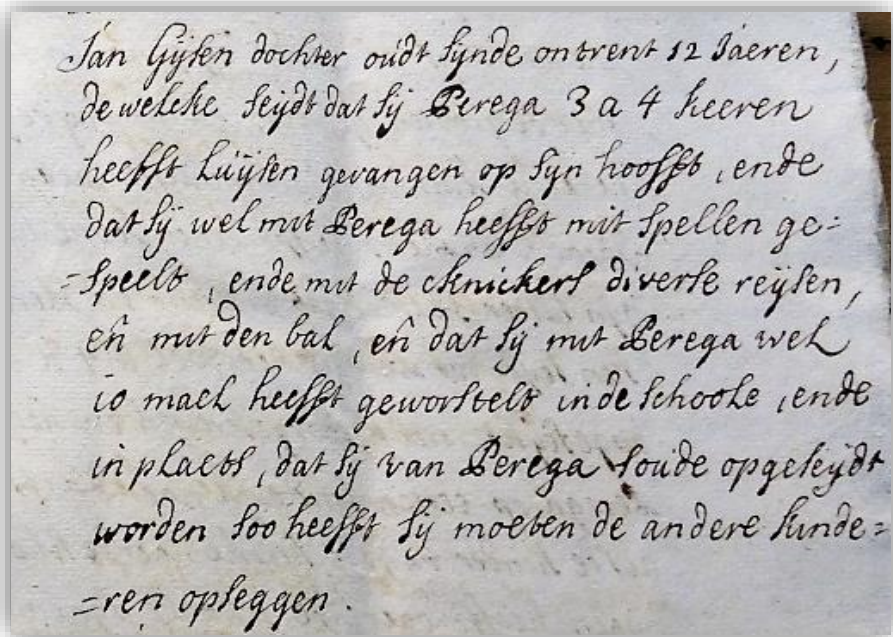 Jan Gijsen dochter oudt sijnde ontrent 12 Jaeren,
de welcke seijdt dat sij Perega 3 a 4 keeren
heefft luijsen gevangen op sijn hoofft, ende
dat sij wel mit Perega heefft mit spellen ge=
=speelt, ende mit de cknickers diverse reijsen,
en̄ mit den bal, en̄ dat sij mit Perega wel
10 mael heefft geworstelt in de schoole, ende
in plaets, dat sij van Perega soude opgeseijdt
worden soo heefft sij moeten de andere kinde=
=ren opseggen.